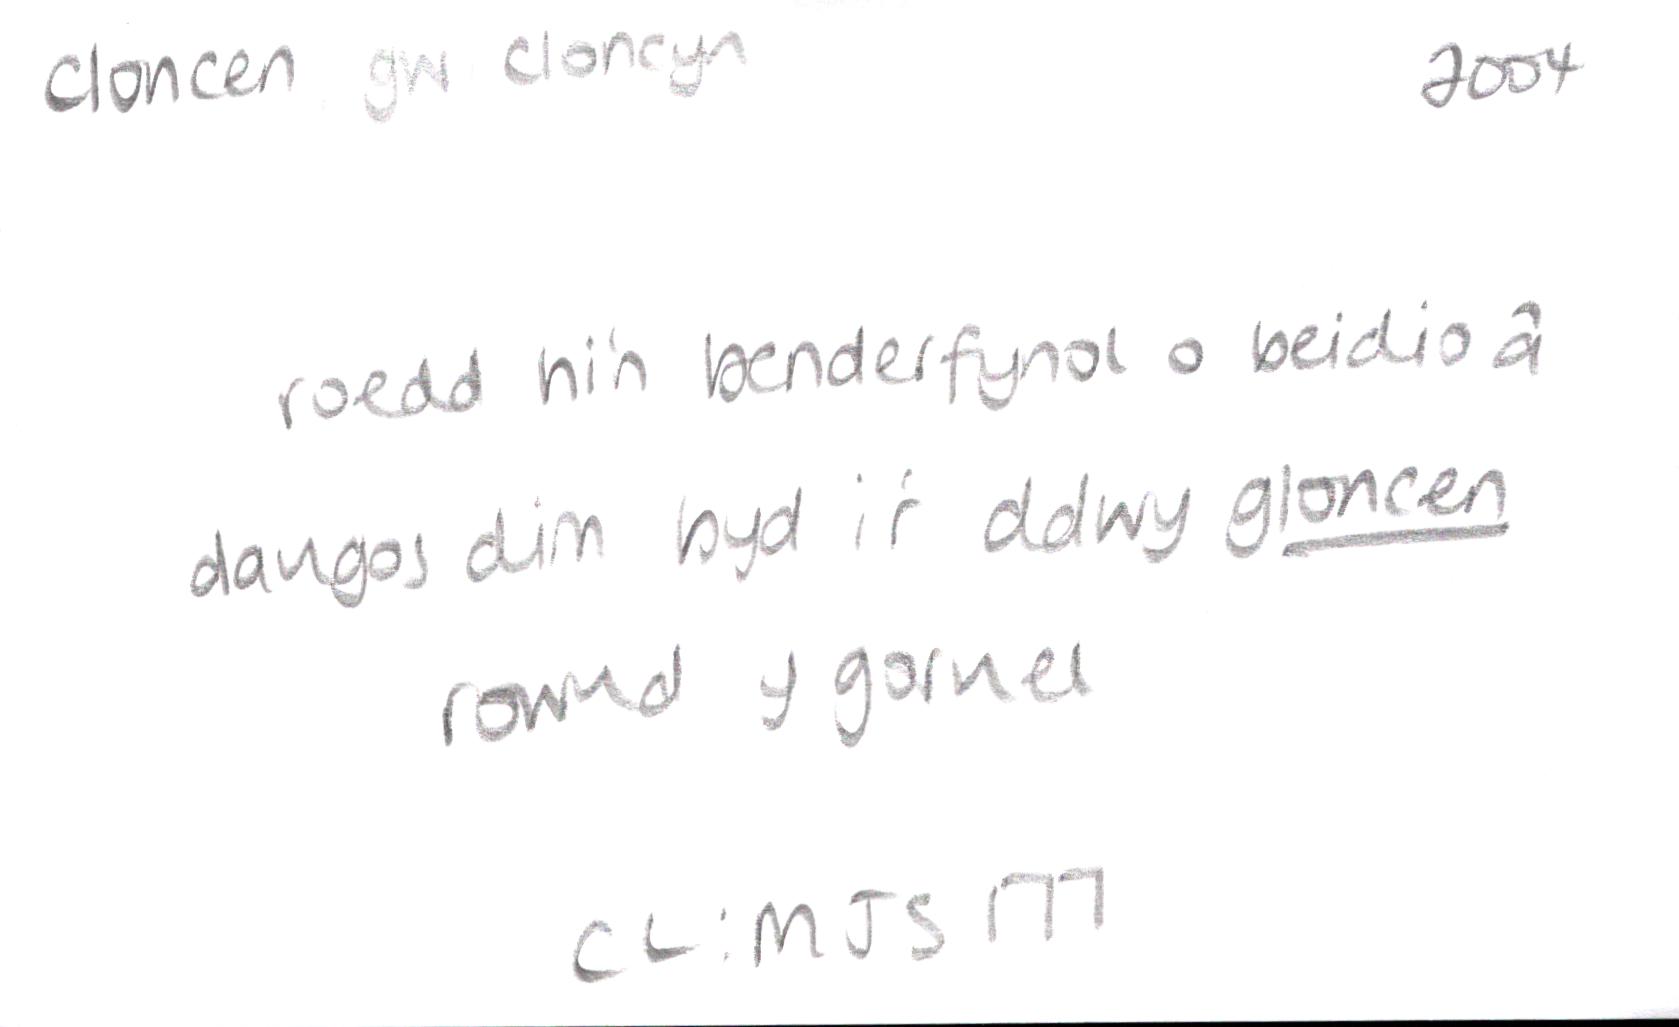 cloncen gw cloncyn 2004
roedd hi'n benderfynol o beidio â
dangos dim byd i'r ddwy gloncen
rownd y gornel
CL:MJS 177